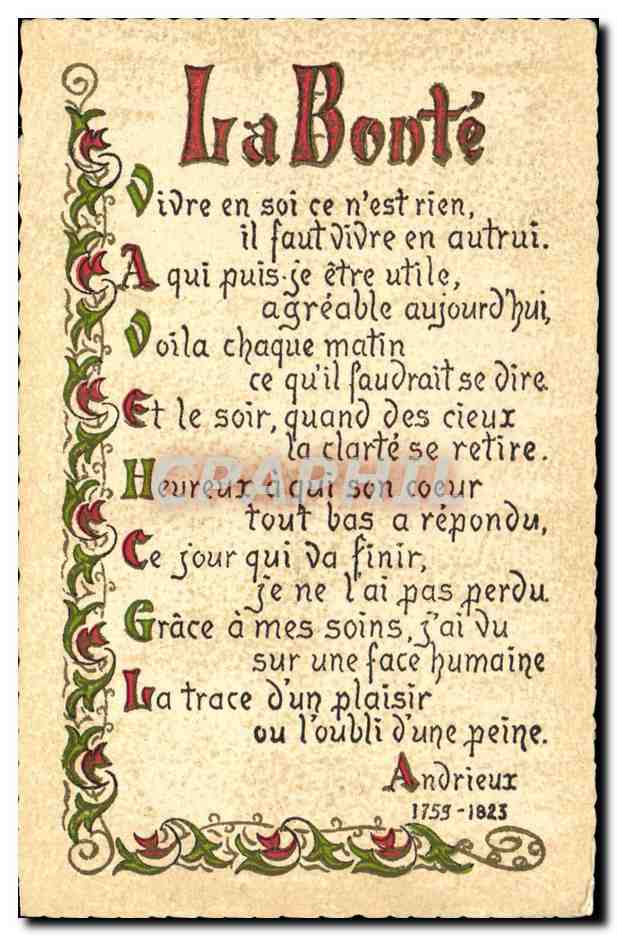 La Bonté
Vivre en soi ce n'est rien,
il faut vivre en autrui.
A qui puis-je être utile,
agréable aujourd'hui,
Voila chaque matin
ce qu'il faudrait se dire.
Et le soir, quand des cieux
la clarté se retire.
Heureux à qui son coeur
tout bas a répondu,
Ce jour qui va finir,
je ne l'ai pas perdu.
Grâce à mes soins, j'ai vu
sur une face humaine
La trace d'un plaisir
ou l'oubli d'une peine.
Andrieux
1759-1823
CPAPHIL